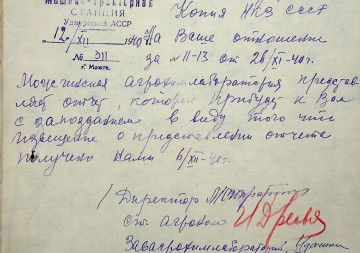 Машинно-тракторная
СТАНЦИЯ
Удмуртской АССР
12/XII 1940
№ 911
г. Можга.
Копия НКЗ СССР
На Ваше отношение
за № 11-13 от 26/XI-40г.
Можгинская агрохимлаборатория представ
ляет отчет, который прибудет к Вам
с запозданием в виду того что
извещение о представлении отчета
получено нами 6/XII-40г.
Директор МТС
Ст. агроном
Завагрохимлабораторией